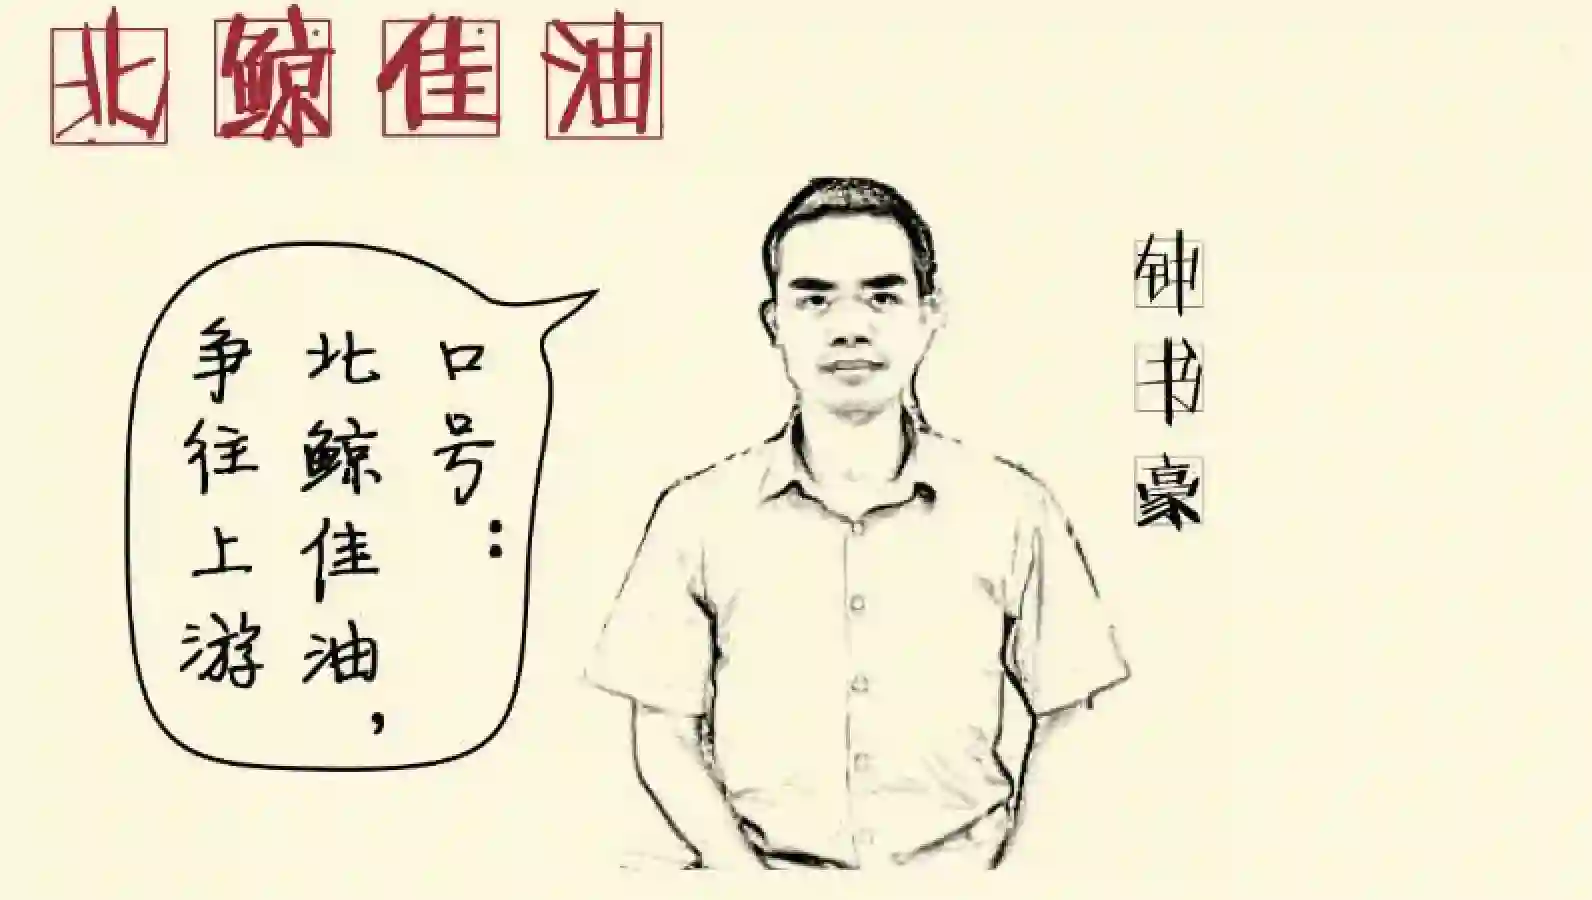 北鲸佳油
口号：
北鲸佳油，
争往上游
钟书豪